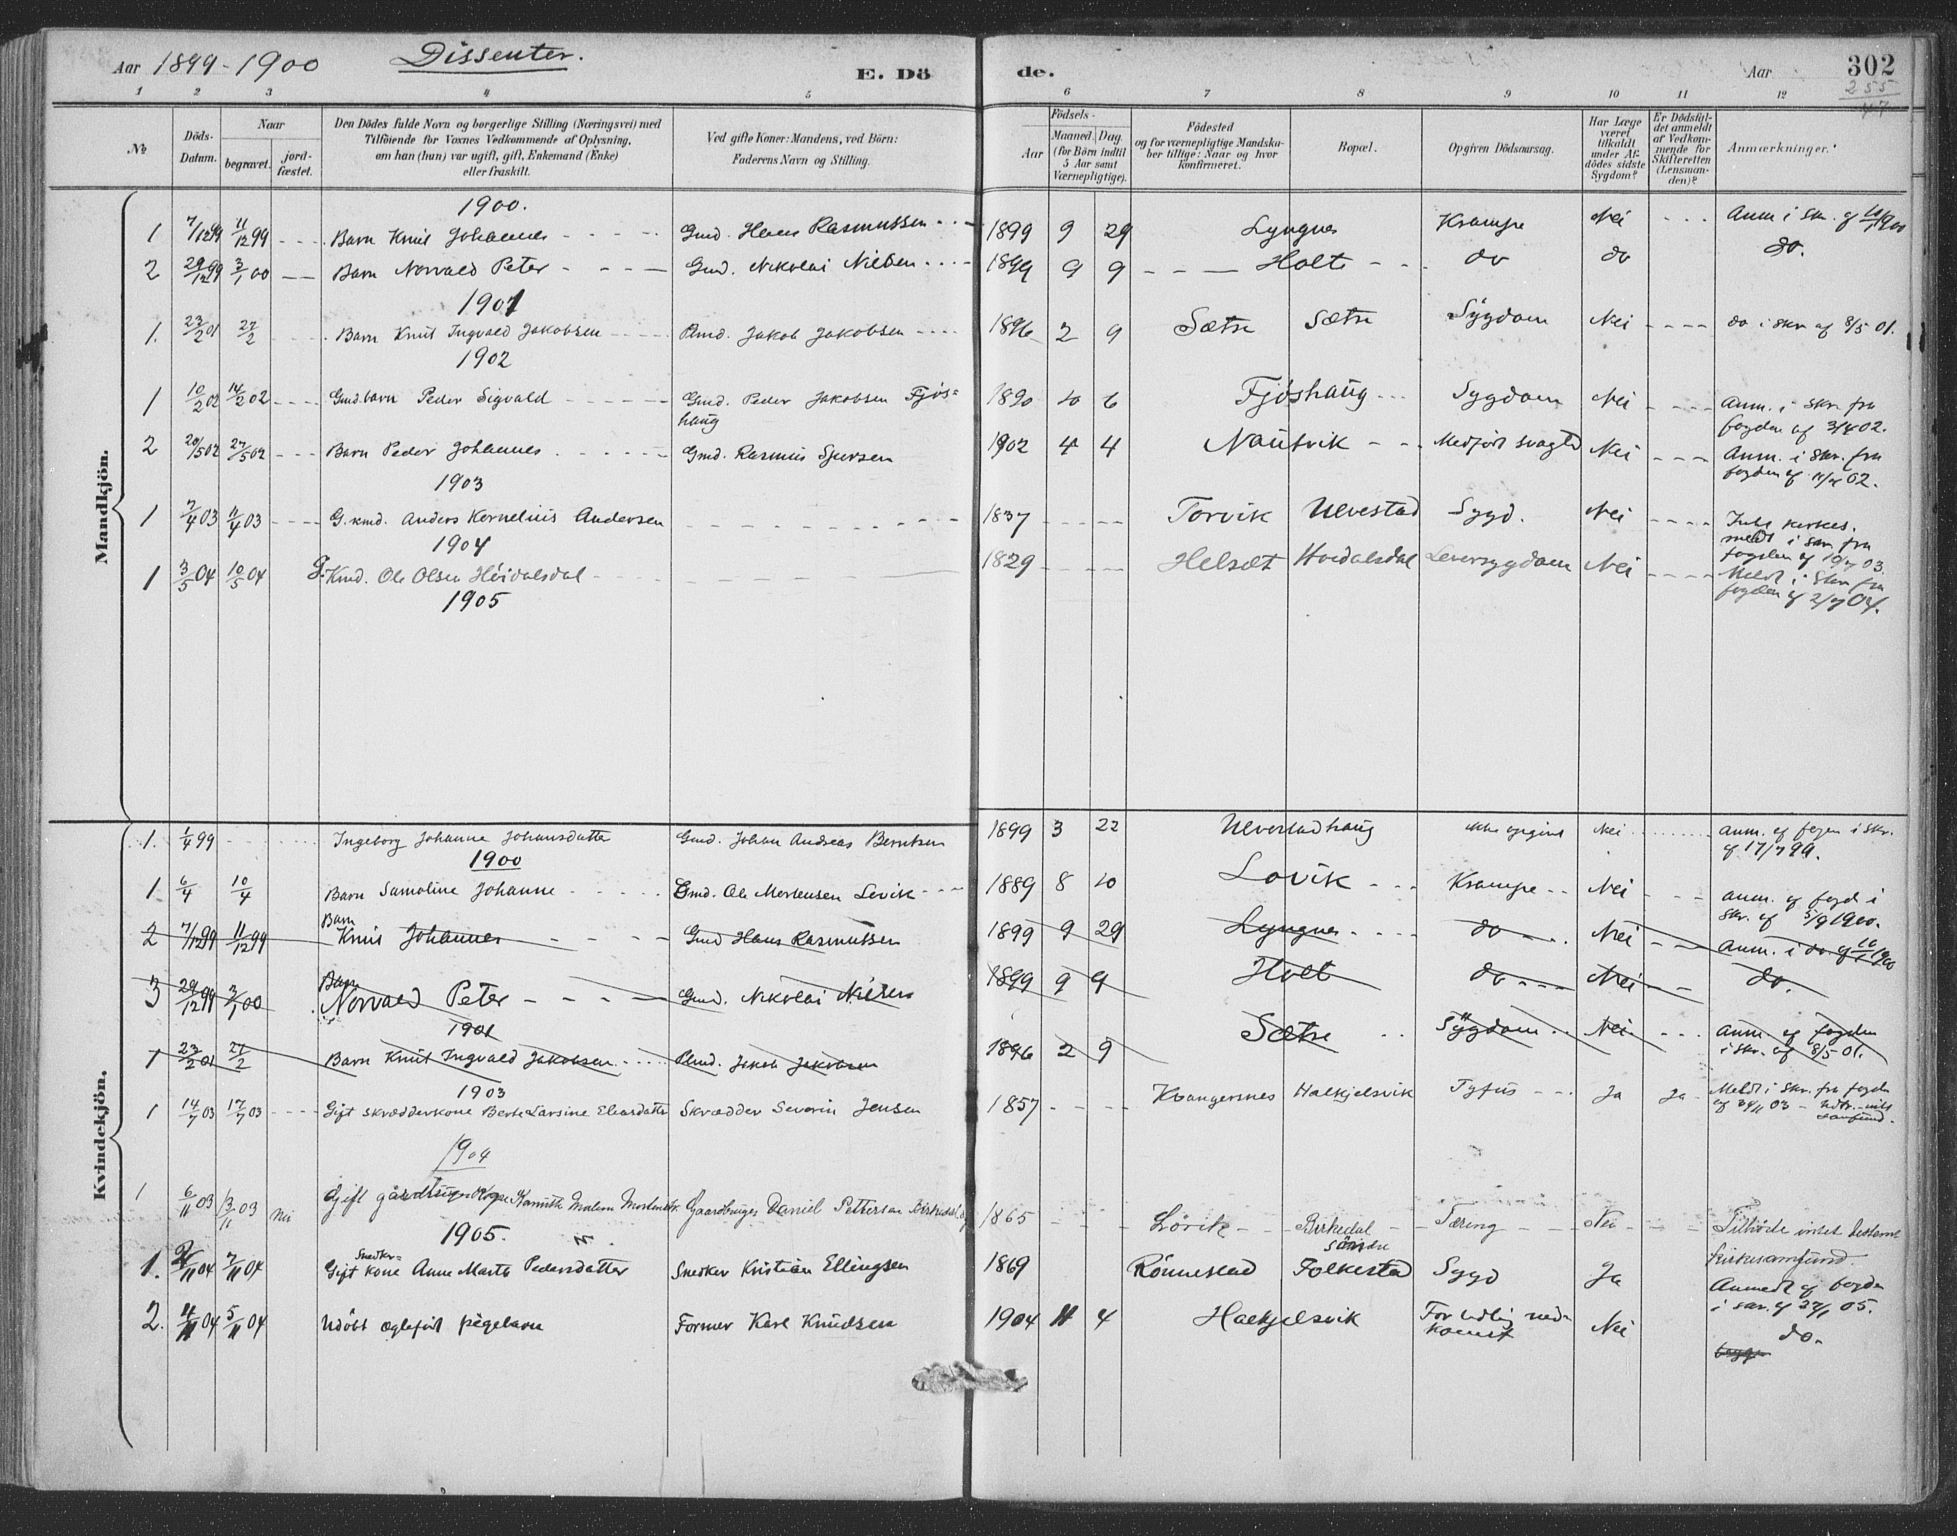 Aar 1899-1900 Dissenter. E. Döde. Aar 302
255
47
1 2 3 4 5 6 7 8 9 10 11 12
No
Döds-Datum.
Naar
begravet. jordfæstet.
Den Dödes fulde Navn og borgerlige Stilling (Næringsvei) med
Tilföiende for Voxnes Vedkommende af Oplysning,
om han (hun) var ugift, gift, Enkemand (Enke)
eller fraskilt.
Ved gifte Koner: Mandens, ved Börn:
Faderens Navn og Stilling.
Födsels-
Aar Maaned. Dag
(for Börn indtil
5 Aar samt
Værnepligtige).
Födested
og for værnepligtige Mandskaber tillige: Naar og hvor
konfirmeret.
Bopæl.
Opgiven Dödsaarsag.
Har Læge
været
tilkaldt
under Afdödes sidste
Sygdom?
Er Dödsfaldet anmeldt
af Vedkommende for
Skifteretten
(Lensmanden)?
Anmærkninger.
Mandkjön.
1900.
1 7/12 99 11/12 99 Barn Knut Johannes Gmd. Hans Rasmussen 1899 9 29 Lyngnes Krampe Nei Anm i skr. af 10/1 1900
2 29/12 99 3/1 00 Barn Norvald Peter Gmd. Nikolai Nilsen 1899 9 9 Holte do do do.
1901
1. 23/2 01 27/2 Barn Knut Ingvald Jakobsen Jakob Jakobsen 1896 2 9 Sætre Sætre Sygdom Nei do i skr af 8/5 01.
1902
1 10/2 02 14/2 02 Gmd.barn Peder Sigvald Gmd. Peder Jakobsen Fjøs=
haug 1890 10 6 Fjøshaug Sygdom Nei Anm. i skr. fra
fogden af 3/4 02.
2 20/5 02 27/5 02 Barn Peder Johannes Gmd. Rasmus Sjursen 1902 4 4 Nautvik Medført svaghed Nei Anm. i skr. fra
fogden af 02.
1903
1 7/4 03 11/4 03 G. kmd. Anders Kornelius Andersen 1837 Torvik Ulvestad Sygd. Nei kirkes.
meldt i skr. fra
fogden af 03.
1904
1 3/5 04 10/5 04 G. Kmd. Ole Olsen Høidalsdal 1829 Helsæt Hoidalsdal Leversygdom Nei Meldt i Skr. fra
fogden af 2/7 04.
1905
Kvindekjön.
1. 1/4 99 Ingeborg Johanne Johansdatter Gmd. Johan Andreas Berntsen 1899 3 22 Ulvestadhaug ikke opgivet Nei Anm. af fogden i skr.
af 17/7 99.
1900
1 6/4 10/4 Barn Samoline Johanne Gmd. Ole Mortensen Løvik 1889 8 10 Lovik Krampe Nei anm. af fogd i
skr. af 5/9 1900.
2 7/12 99 11/12 99 Barn
Knut Johannes Gmd Hans Rasmussen 1899 9 29 Lyngnes do Nei Anm. i do. af 10/1 1900
3 29/12 99 3/1 00 Barn
Norvald Peter Gmd. Nikolai Nilsen 1899 9 9 Holt do Nei do.
1901
1 23/2 01 27/2 Barn Knut Ingvald Jakobsen Jakob Jakobsen 1896 2 9 Sætre Sygdom Nei Anm. af fogden
i skr. af 8/5 01.
1903
1 14/7 03 17/7 03 Gift Skrædderkone Berte Larsine Eliasdatter Skrædder Severin Jensen 1857 Kvangersnes Halkjelsvik Tyfus Ja Ja Meldt i skr. fra fogden
03
1904
1 6/11 03 13/11 03 nei Gift Malene Gaardbruger Daniel Pettersen Birkedal 1865 Lövik Birkedal
Söndre Tæring Nei Tilhøde intet bestemt
Kirkesamfund.
1905.
1. 2/11 04 7/11 04 Snedker-
Gift kone Anne Marte Pedersdatter Snedker Kristian Ellingsen 1869 Rönnestad Folkestad Sygd Ja Anmedt af fogden
i skr. af 27/1 05.
2. 4/11 04 5/11 04 Udöbt ægtefödt pigebarn Former Karl Knudsen 1904 11 4 Halkjelsvik For tidlig ned-
komst Nei do.